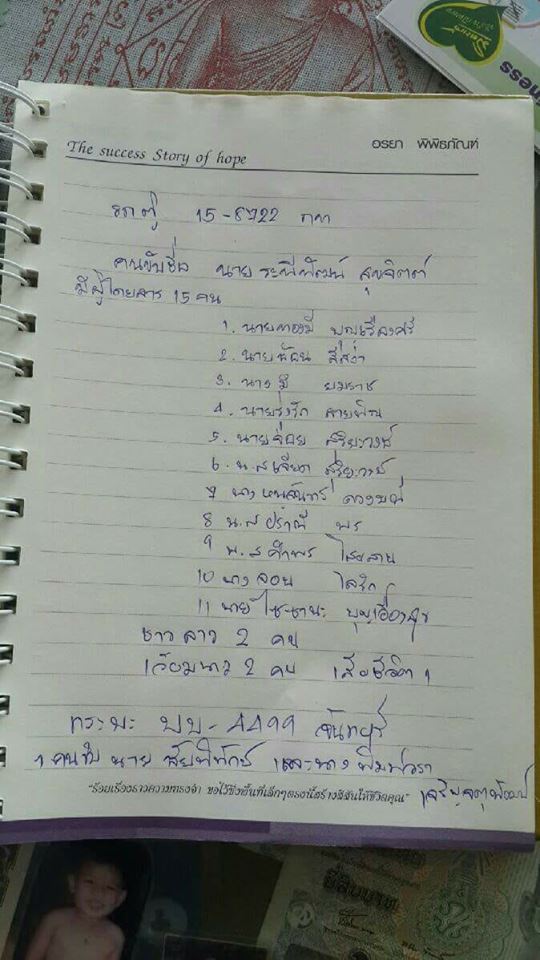 The success Story of hope
อรยา พิพิธภัณฑ์
รถตู้ 15-8722 กทม
คนขับชื่อ นาย ระพีพัฒน์ สุขจิตต์
มีผู้โดยสาร 15 คน
1. นายทองมี บุญเรืองศรี
2. นายพ้อน สีสง่า
3. นาง มี ยมราช
4. นายรุ่งรัก สายพิณ
5. นายจ่อย สุริยะวงษ์
6. น.ส เจียด สุริยะวงษ์
7 นาง หนูจันทร์ ดวง
8 น.ส ปราณี พร
9 น.ส คำพร ไสย
10 นาง ลอน
11 นาย ไช บุญเฮือง
ชาวลาว 2 คน
เวียนาม 2 คน เสียชีวิต 1
กระบะ บบ-4499 จันทบุรี
1 คนขับ นาย ชัยพิทักษ์ และนาง พิมพ์วรา
"ร้อยเรื่องราวความทรงจำ ขอไว้ซึ่งพื้นที่เล็กๆตรงนี้สร้างสีสันให้ชีวิตคุณ"
ยี่สิบบาท
ness